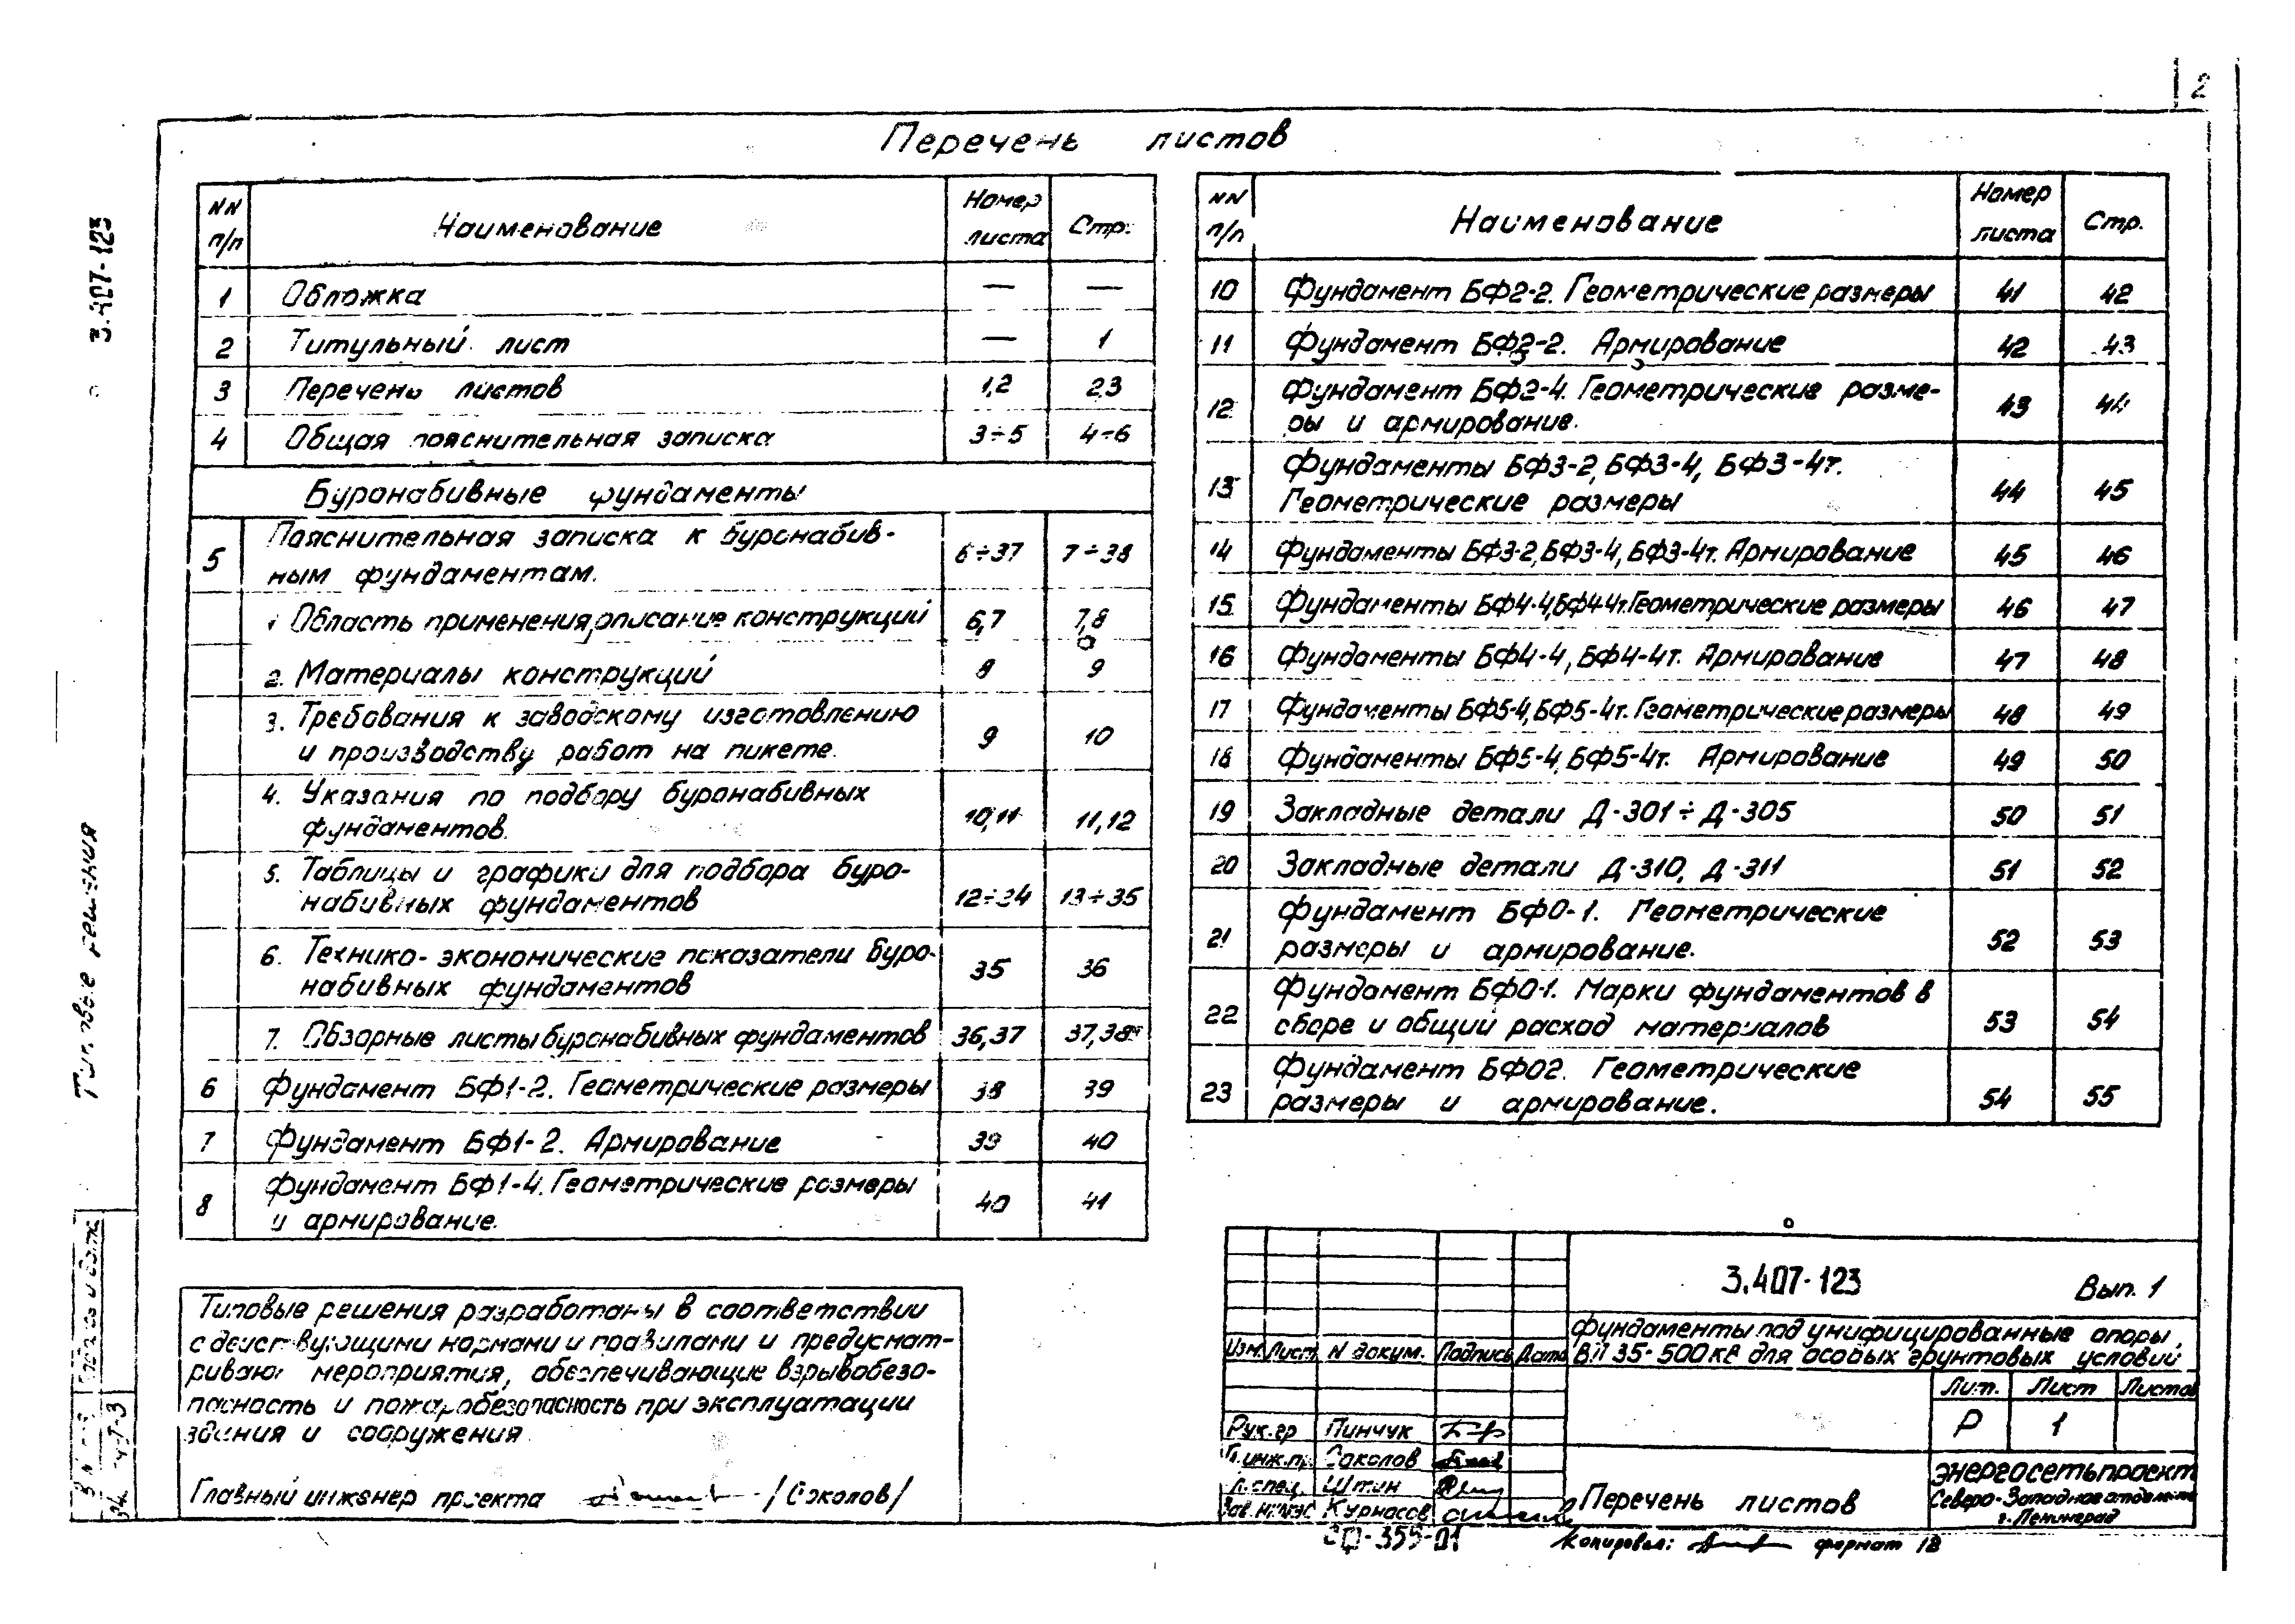 2
Перечень листов
NN п/п Наименование Номер листа Стр.
1 Обложка — —
2 Титульный лист — 1
3 Перечень листов 1,2 2,3
4 Общая пояснительная записка 3÷5 4÷6
Буронабивные фундаменты
5 Пояснительная записка к буронабив-
ным фундаментам. 6÷37 7÷38
1 Область применения, описание конструкций 6,7 7,8
2. Материалы конструкций 8 9
3. Требования к заводскому изготовлению
и производству работ на пикете. 9 10
4. Указания по подбору буронабивных
фундаментов. 10,11 11,12
5. Таблицы и графики для подбора буро-
набивных фундаментов 12÷34 13÷35
6. Технико-экономические показатели буро-
набивных фундаментов 35 36
7. Обзорные листы буронабивных фундаментов 36,37 37,38
6 Фундамент БФ1-2. Геометрические размеры 38 39
7 Фундамент БФ1-2. Армирование 39 40
8 Фундамент БФ1-4. Геометрические размеры
и армирование. 40 41
NN п/п Наименование Номер листа Стр.
10 Фундамент БФ2-2. Геометрические размеры 41 42
11 Фундамент БФ2-2. Армирование 42 43
12 Фундамент БФ2-4. Геометрические разме-
ры и армирование. 43 44
13 Фундаменты БФ3-2, БФ3-4, БФ3-4т.
Геометрические размеры 44 45
14 Фундаменты БФ3-2, БФ3-4, БФ3-4т. Армирование 45 46
15 Фундаменты БФ4-4, БФ4-4т. Геометрические размеры 46 47
16 Фундаменты БФ4-4, БФ4-4т. Армирование 47 48
17 Фундаменты БФ5-4, БФ5-4т. Геометрические размеры 48 49
18 Фундаменты БФ5-4, БФ5-4т. Армирование 49 50
19 Закладные детали Д-301÷Д-305 50 51
20 Закладные детали Д-310, Д-311 51 52
21 Фундамент БФ0-1. Геометрические
размеры и армирование. 52 53
22 Фундамент БФ0-1. Марки фундаментов в
сборе и общий расход материалов 53 54
23 Фундамент БФ02. Геометрические
размеры и армирование. 54 55
Типовые решения разработаны в соответствии
с действующими нормами и правилами и предусмат-
ривают мероприятия, обеспечивающие взрывобезо-
пасность и пожаробезопасность при эксплуатации
здания и сооружения.
Главный инженер проекта /Соколов/
3.407-123 Вып. 1
Фундаменты под унифицированные опоры
ВЛ 35-500 кВ для особых грунтовых условий
Изм. Лист N докум. Подпись Дата
Лит. Лист Листов
Р 1
Рук.гр Пинчук
Гл.инж.пр. Соколов
Гл.спец. Штин
Зав. НИЛЭС Курносов
Перечень листов
Энергосетьпроект
Северо-Западное отделение
г. Ленинград
Копировал: формат 12
3.407-123
Типовые решения
Подпись и дата